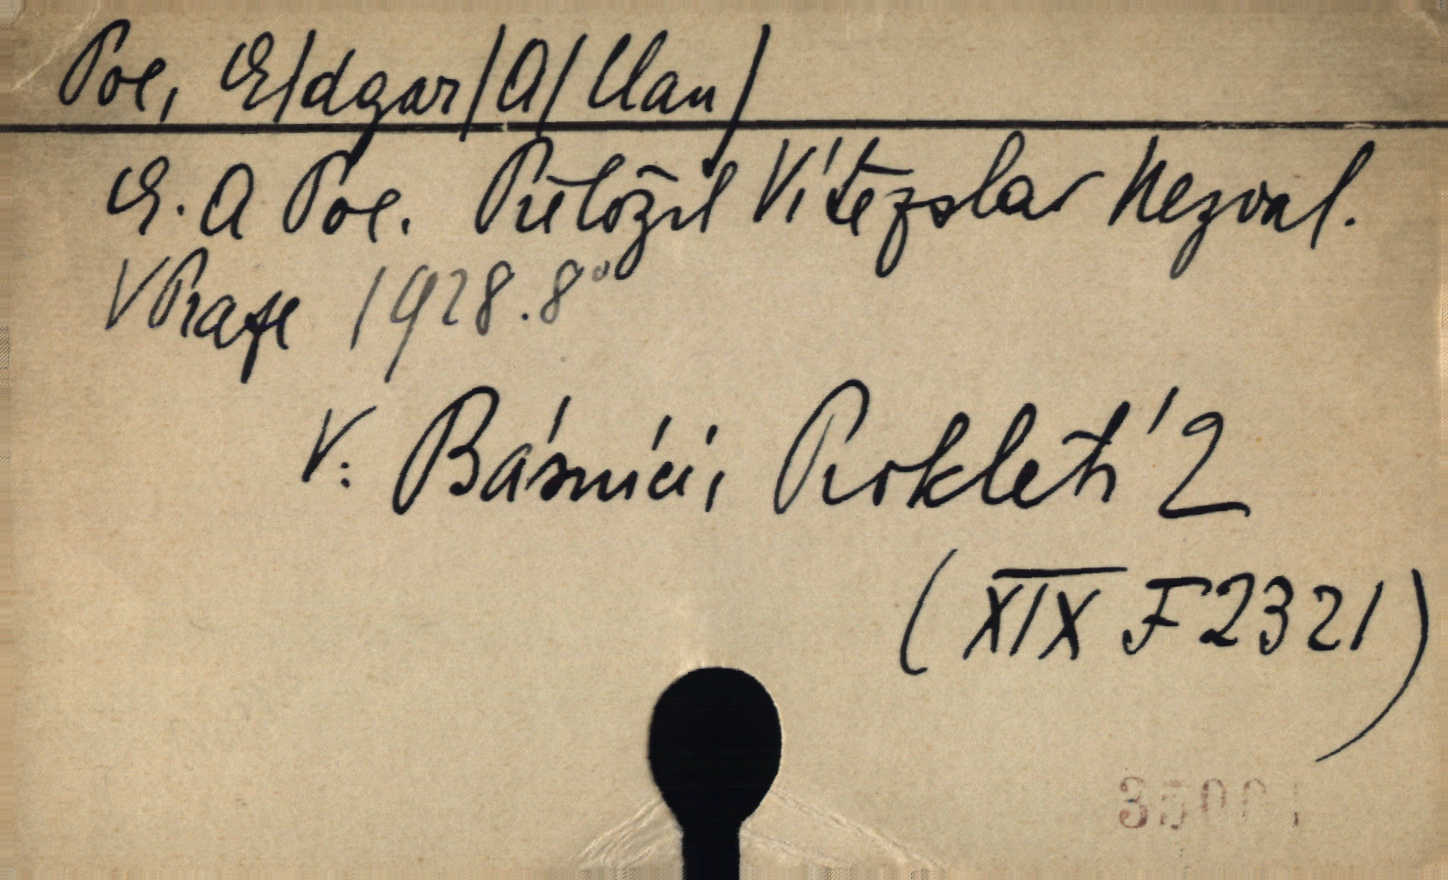 Poe, E/dgar/A/llan/
E. A Poe. Přeložil Vítězslav Nezval.
V Praze 1928. 8°
V: Básníci, Prokletí 2
(XIX F 2321)